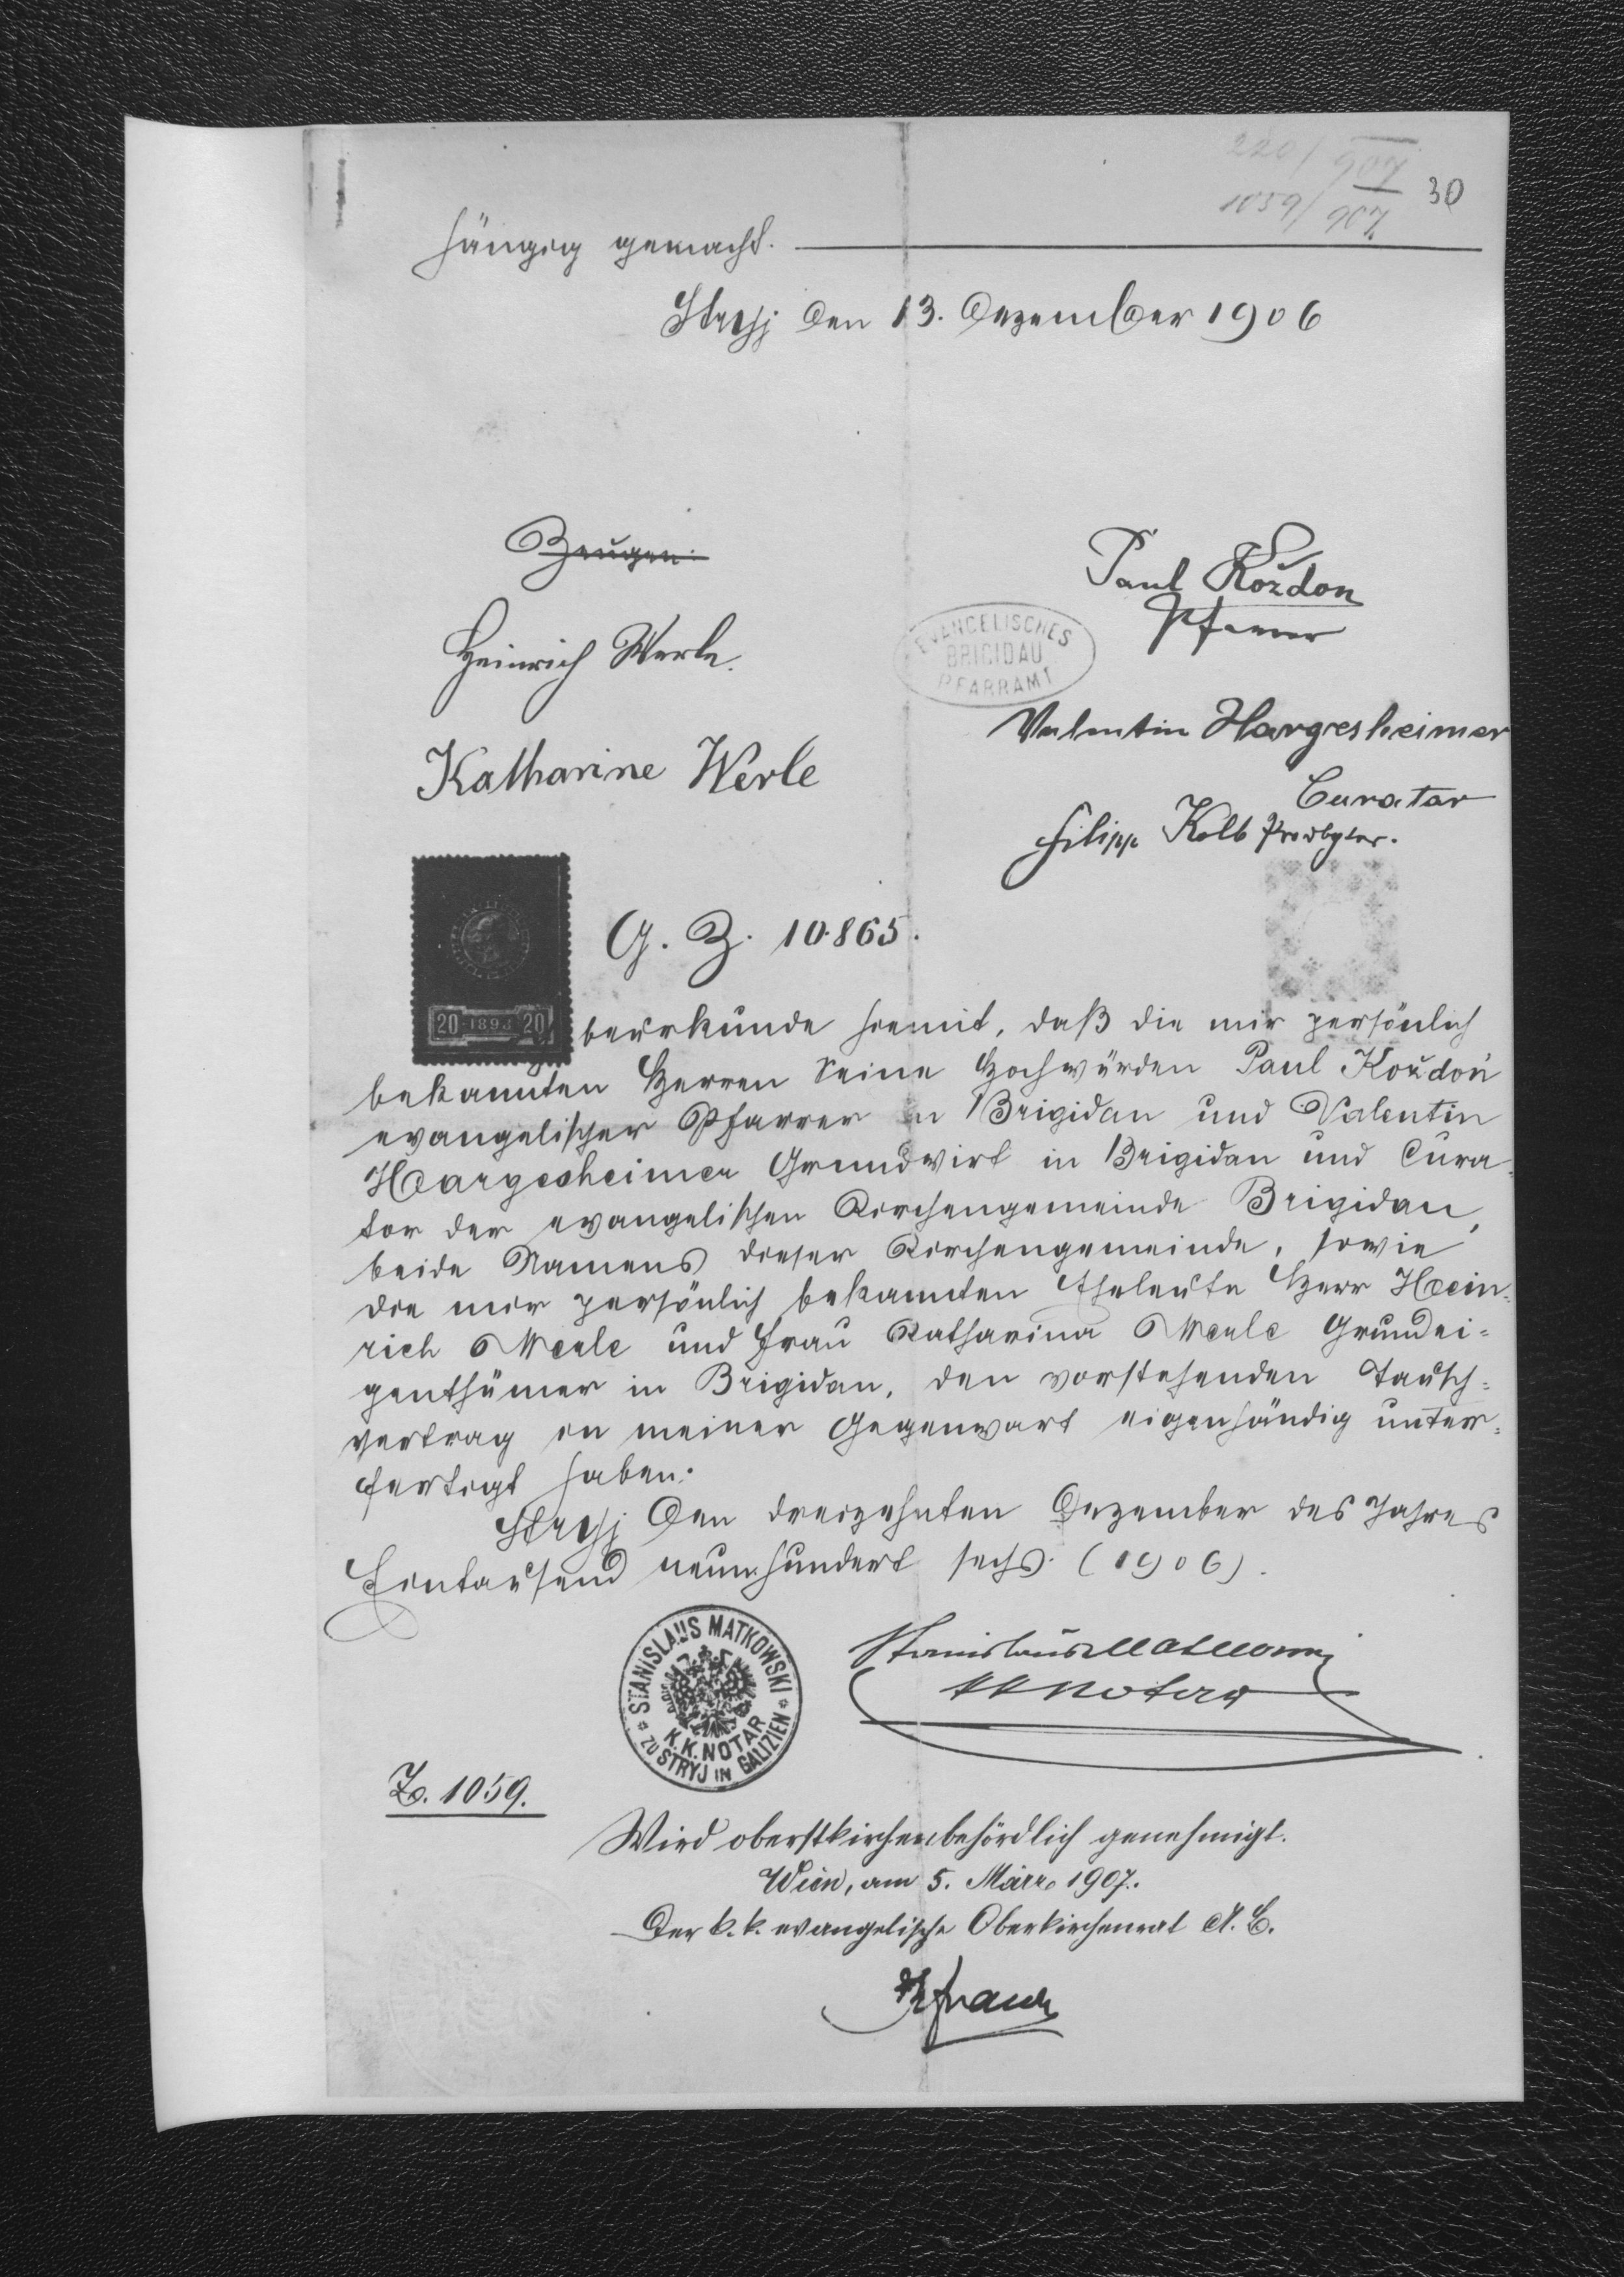 220/907
1059/907 30
hängig gemacht.
Stryj den 13. Dezember 1906
Zeugen:
Paul Kożdoń
Pfarrer
EVANGELISCHES
BRIGIDAU
PFARRAMT
Heinrich Werle.
Valentin Hargesheimer
Katharine Werle
Curator
Filipp Kolb Presbyter.
G. Z. 10.865.
20 1893 20
beurkunde hiemit, daß die mir persönlich
bekannten Herren Seine Hochwürden Paul Kożdoń
evangelischer Pfarrer in Brigidau und Valentin
Hargesheimer Grundwirt in Brigidau und Cura-
tor der evangelischen Kirchengemeinde Brigidau,
beide Namens dieser Kirchengemeinde, sowie
die mir persönlich bekannten Eheleute Herr Hein-
rich Werle und Frau Katharina Werle Grundei-
genthümer in Brigidau, den vorstehenden Tausch-
vertrag in meiner Gegenwart eigenhändig unter-
fertigt haben.
Stryj den dreizehnten Dezember des Jahres
Eintausend neunhundert sechs (1906).
STANISLAUS MATKOWSKI
K.K. NOTAR
ZU STRYJ IN GALIZIEN
Stanislaus Matkowski
kk Notar
Z. 1059.
Wird oberstkirchenbehördlich genehmigt.
Wien, am 5. März 1907.
Der k. k. evangelische Oberkirchenrat A. C.